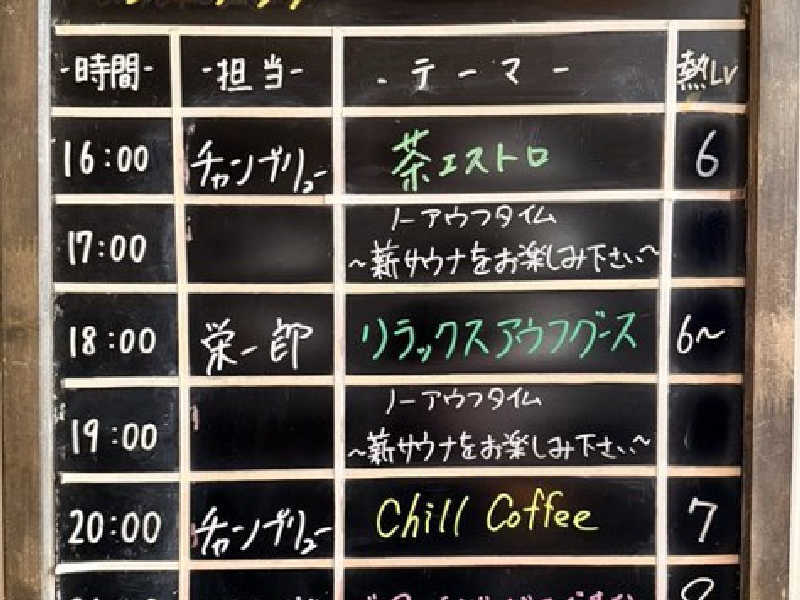 -時間- -担当- -テーマー 熱Lv
16:00 チャンプリュー 茶エストロ 6
17:00 ノーアウフタイム
~薪サウナをお楽しみ下さい~
18:00 栄一郎 リラックスアウフグース 6~
19:00 ノーアウフタイム
~薪サウナをお楽しみ下さい~
20:00 チャンプリュー Chill Coffee 7